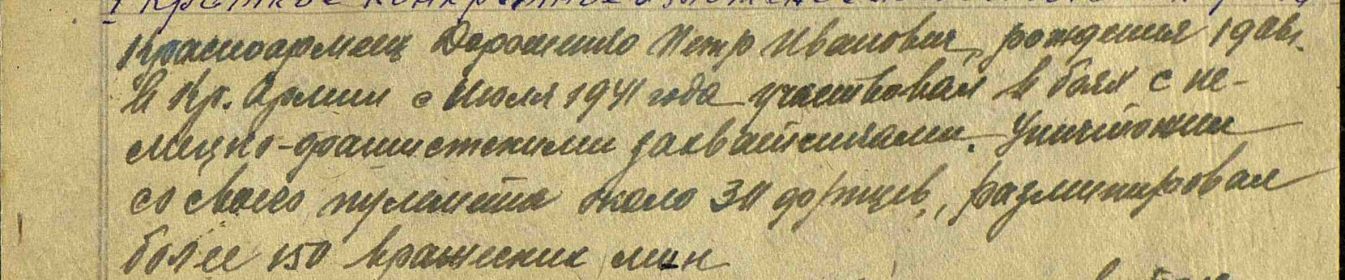 Краткое конкретное изложение
Красноармеец Дорошенко Петр Иванович, рождения 1906г.
В Кр. Армии с Июля 1941 года участвовал в боях с не-
мецко-фашистскими захватчиками. Уничтожил
со своего пулемета около 30 фрицев, разминировал
более 150 вражеских мин